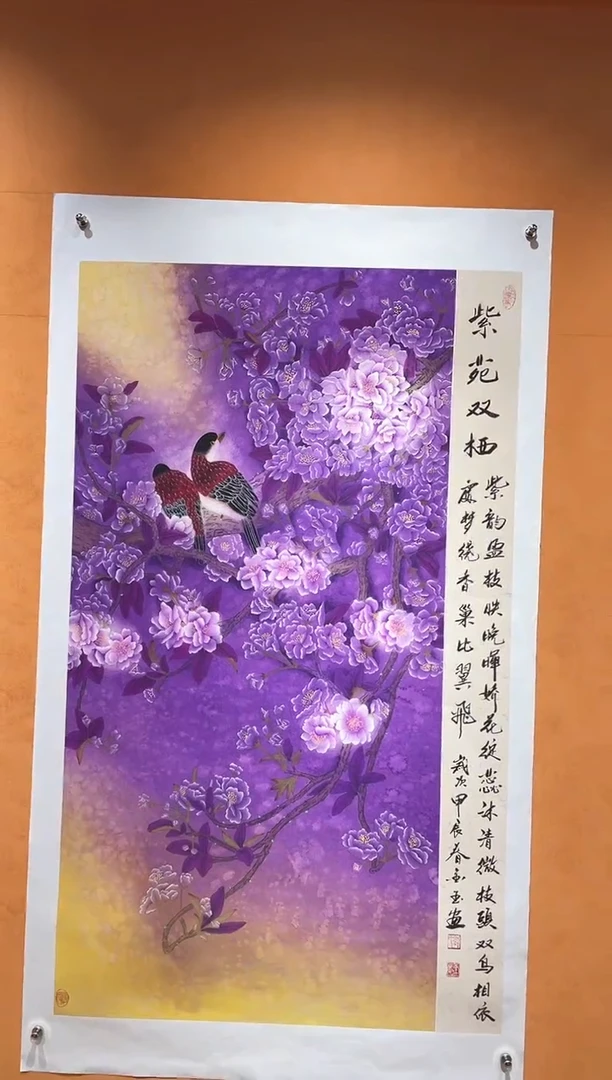 紫苑双栖
紫韵盈枝映晚暉娇花绽蕊沐清微枝頭双鸟相依
處梦绕香巢比翼飛
歲次甲辰春玉画